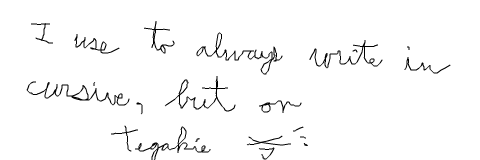 I use to always write in
cursive, but on
Tegakie